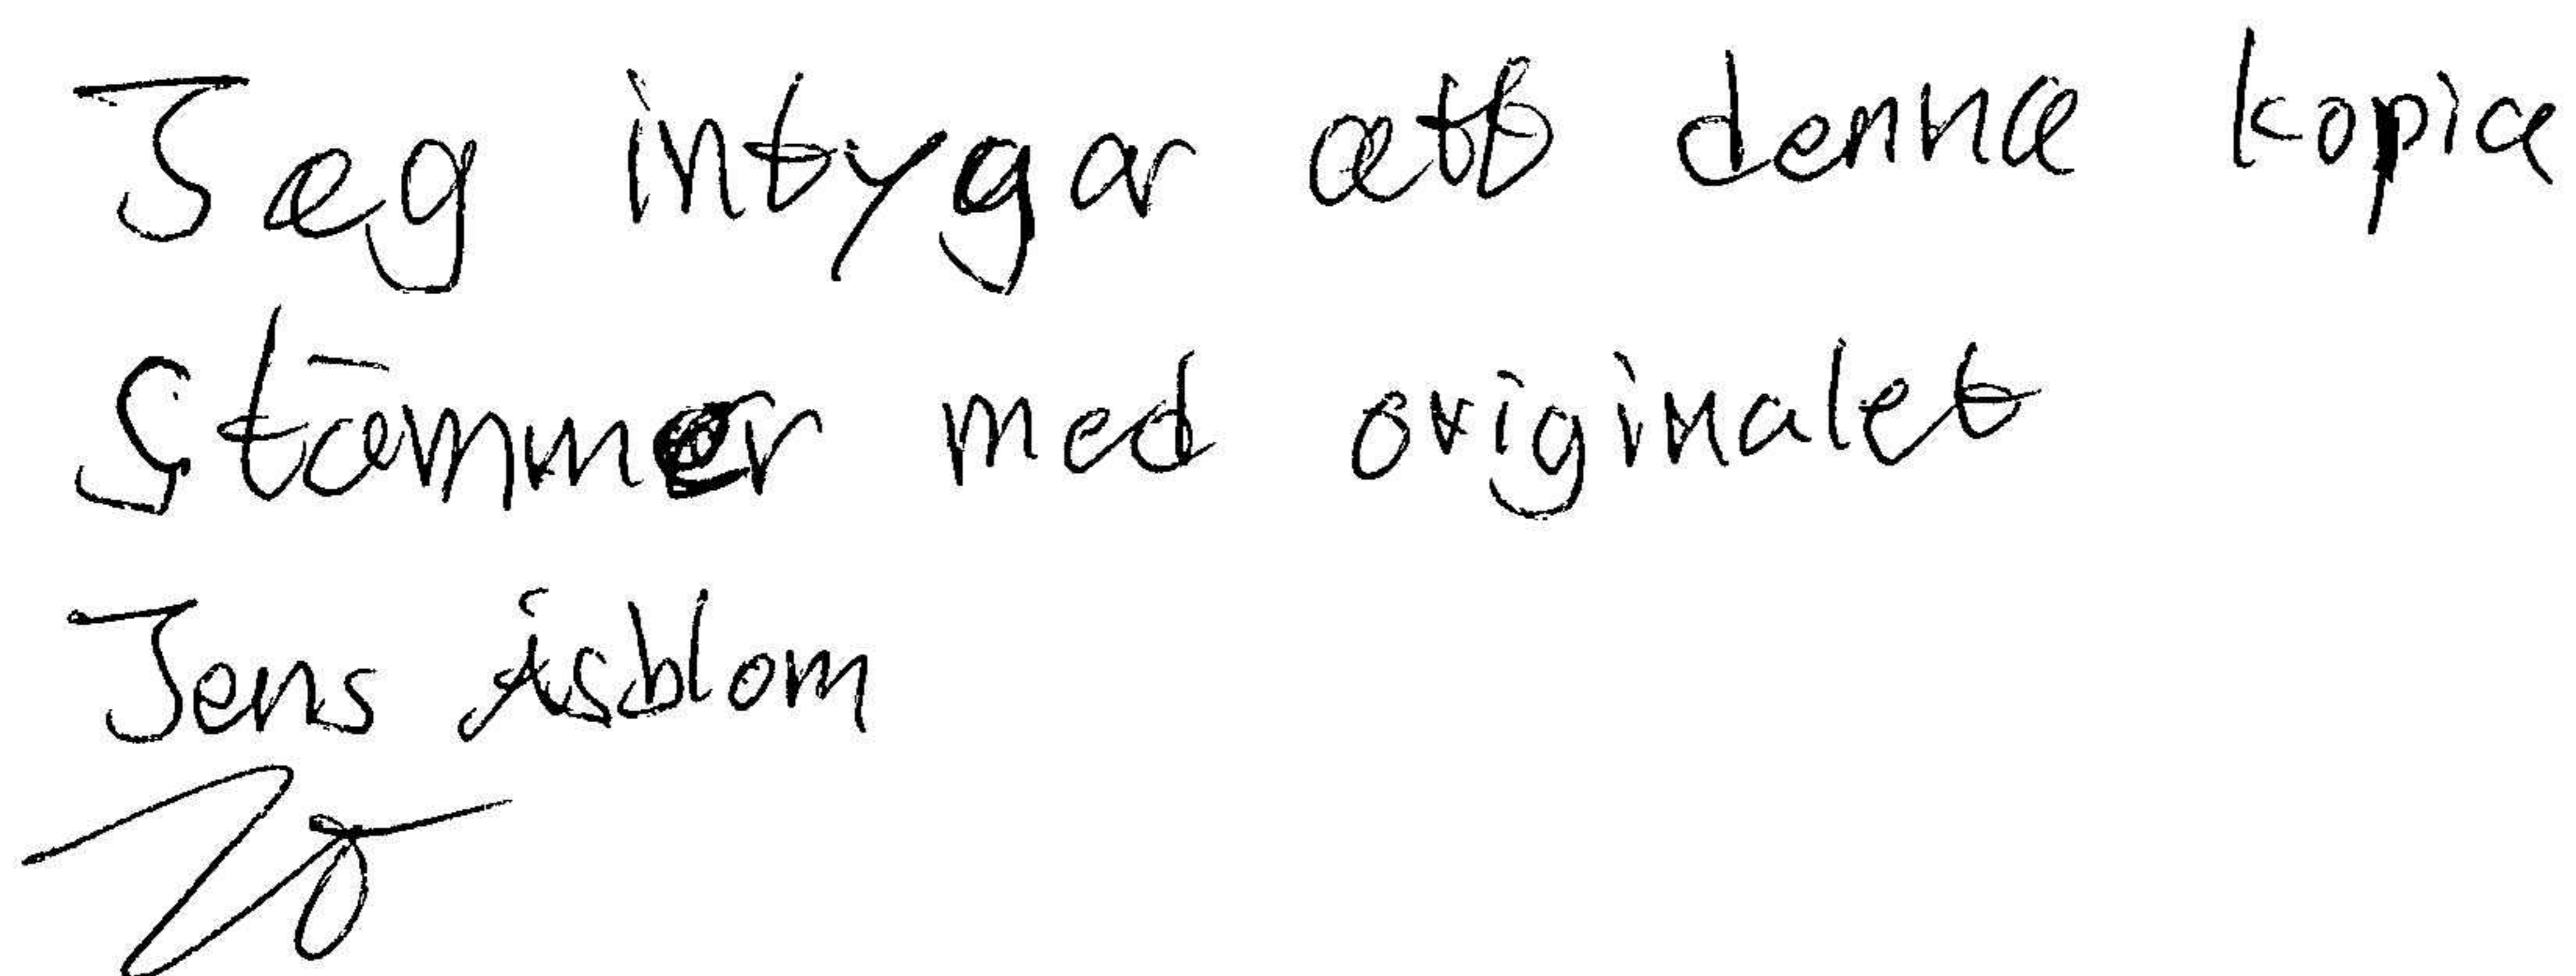 Jag intygar att denna kopia
Stämmer med originalet
Jens Åsblom